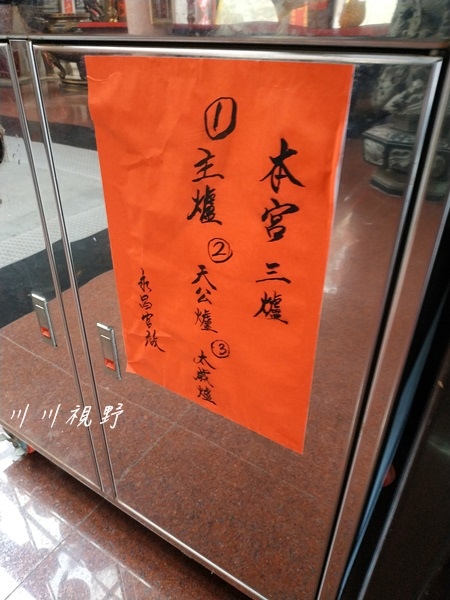 本宮三爐
①主爐②天公爐③太歲爐
永昌宮啟
川川視野